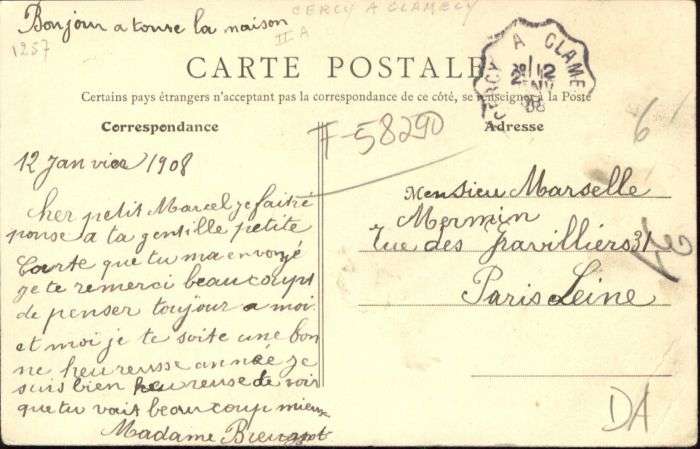 Bonjour a toute la maison
CERCY A CLAMECY
II A
1257
CERCY A CLAME
12
08
CARTE POSTALE
Certains pays étrangers n'acceptant pas la correspondance de ce côté, se renseigner à la Poste
Correspondance
F-58290
Adresse
6
12 Janvier 1908
her petit Marcel je fait ré
ponse a ta gentille petite
Carte que tu ma envoyé
je te remerci beaucoupt
de penser toujour a moi
et moi je te soite une bon
ne heureusse année je
suis bien heureuse de voir
que tu vait beaucoup mieux
Madame
Mensieu Marselle
Mermin
rue des Gravilliers 31
Paris Seine
DA